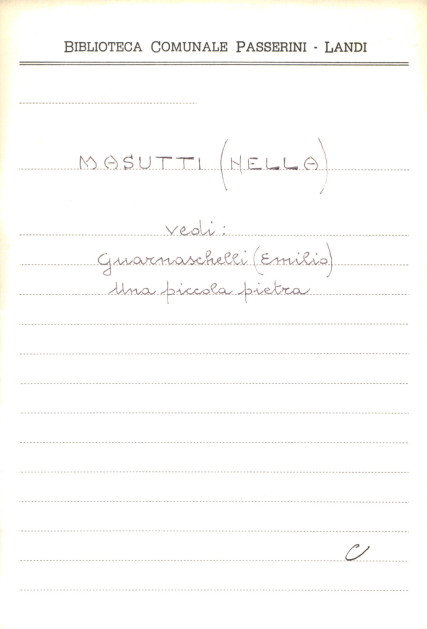 BIBLIOTECA COMUNALE PASSERINI - LANDI
MASUTTI (NELLA)
vedi:
Guarnaschelli (Emilio)
Una piccola pietra
C